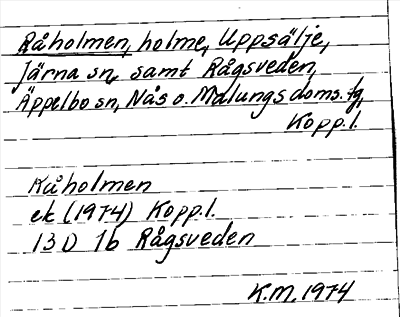 Råholmen, holme, Uppsälje,
Järna sn, samt Rågsveden,
Äppelbo sn, Nås o. Malungs doms. fg,
Kopp. l.
Råholmen
ek (1974) Kopp. l.
13 D 1b Rågsveden
K.M. 1974